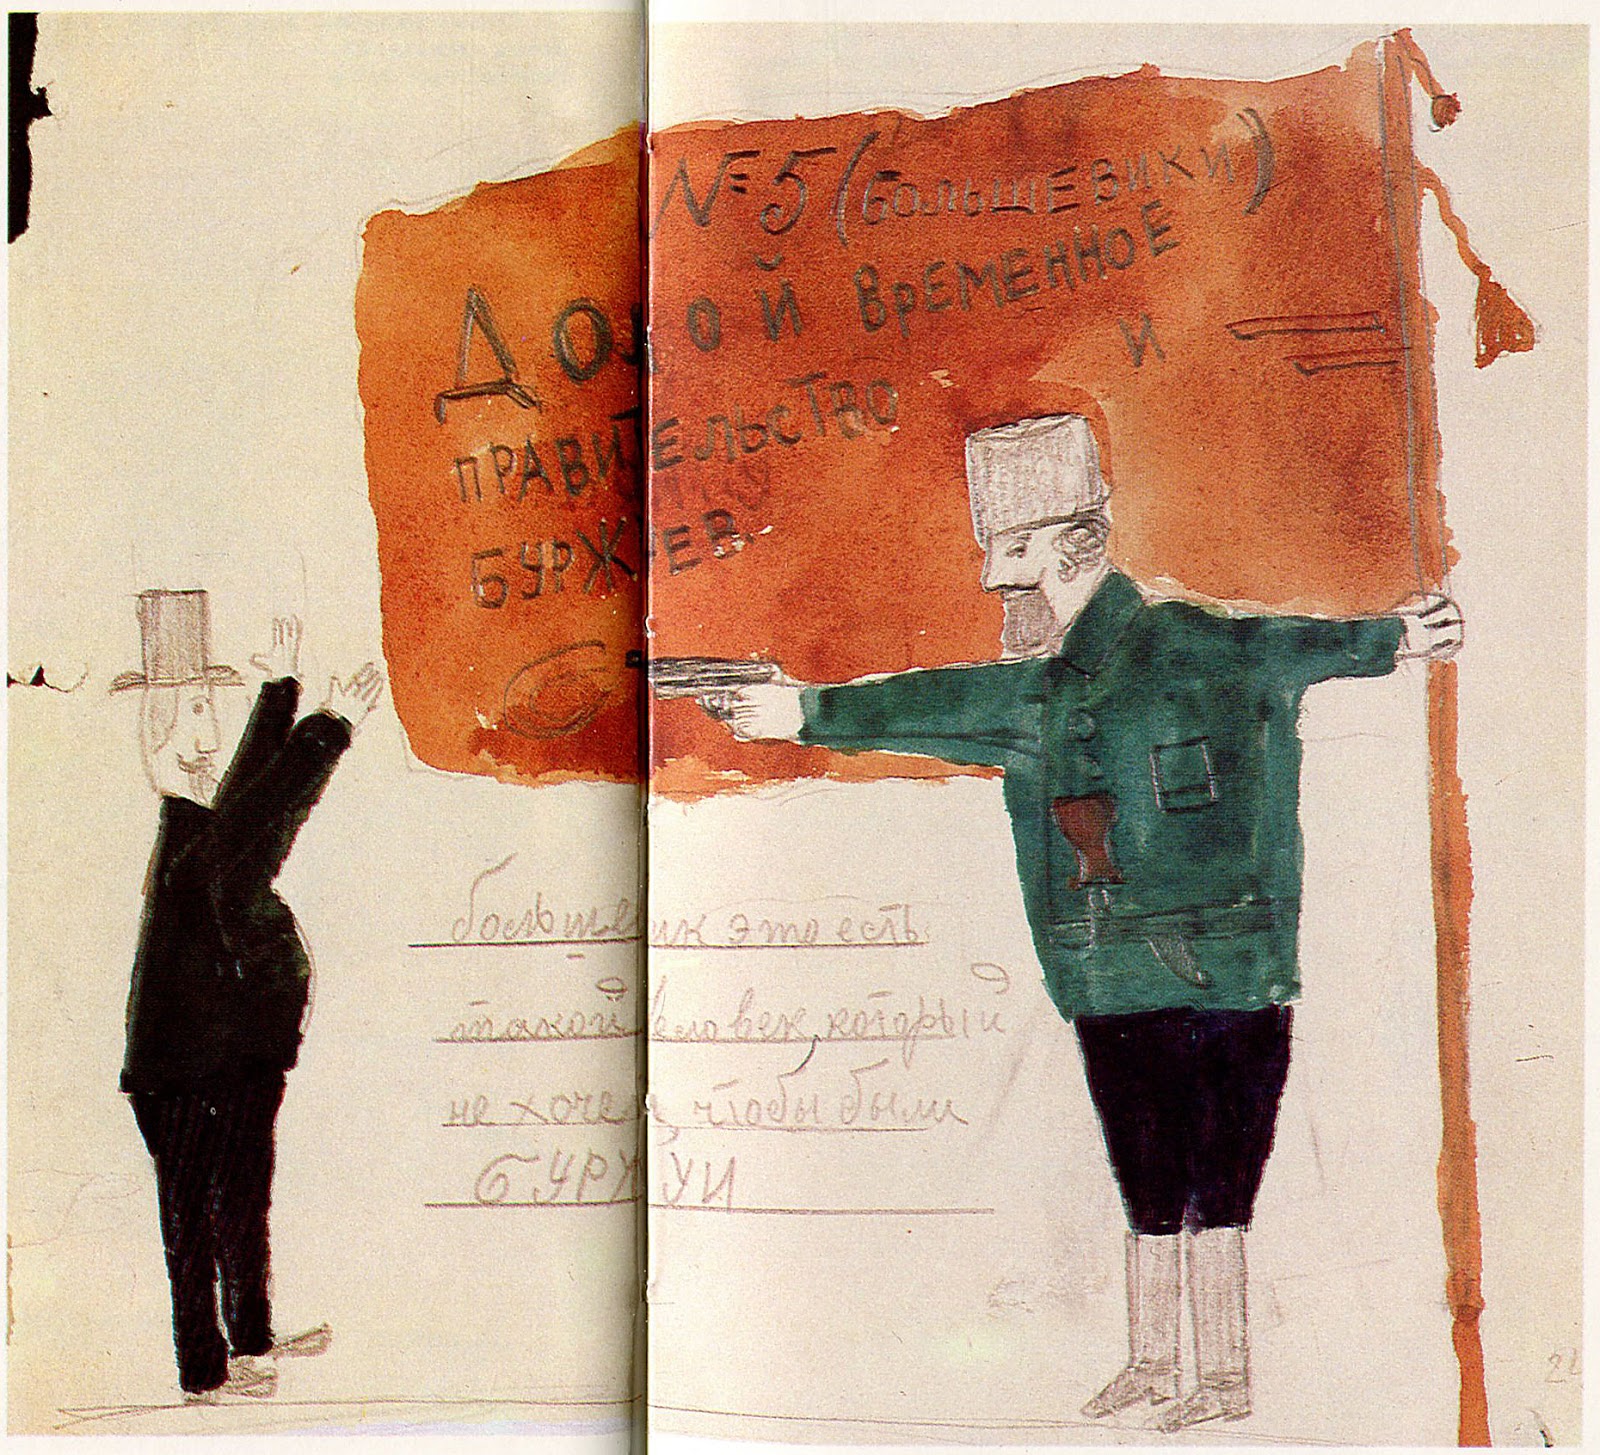 №5 (БОЛЬШЕВИКИ)
ДОЛОЙ ВРЕМЕННОЕ
ПРАВИТЕЛЬСТВО И
БУРЖУЕВ.
большевик это есть
такой человек, который
не хочет, чтобы были
БУРЖУИ